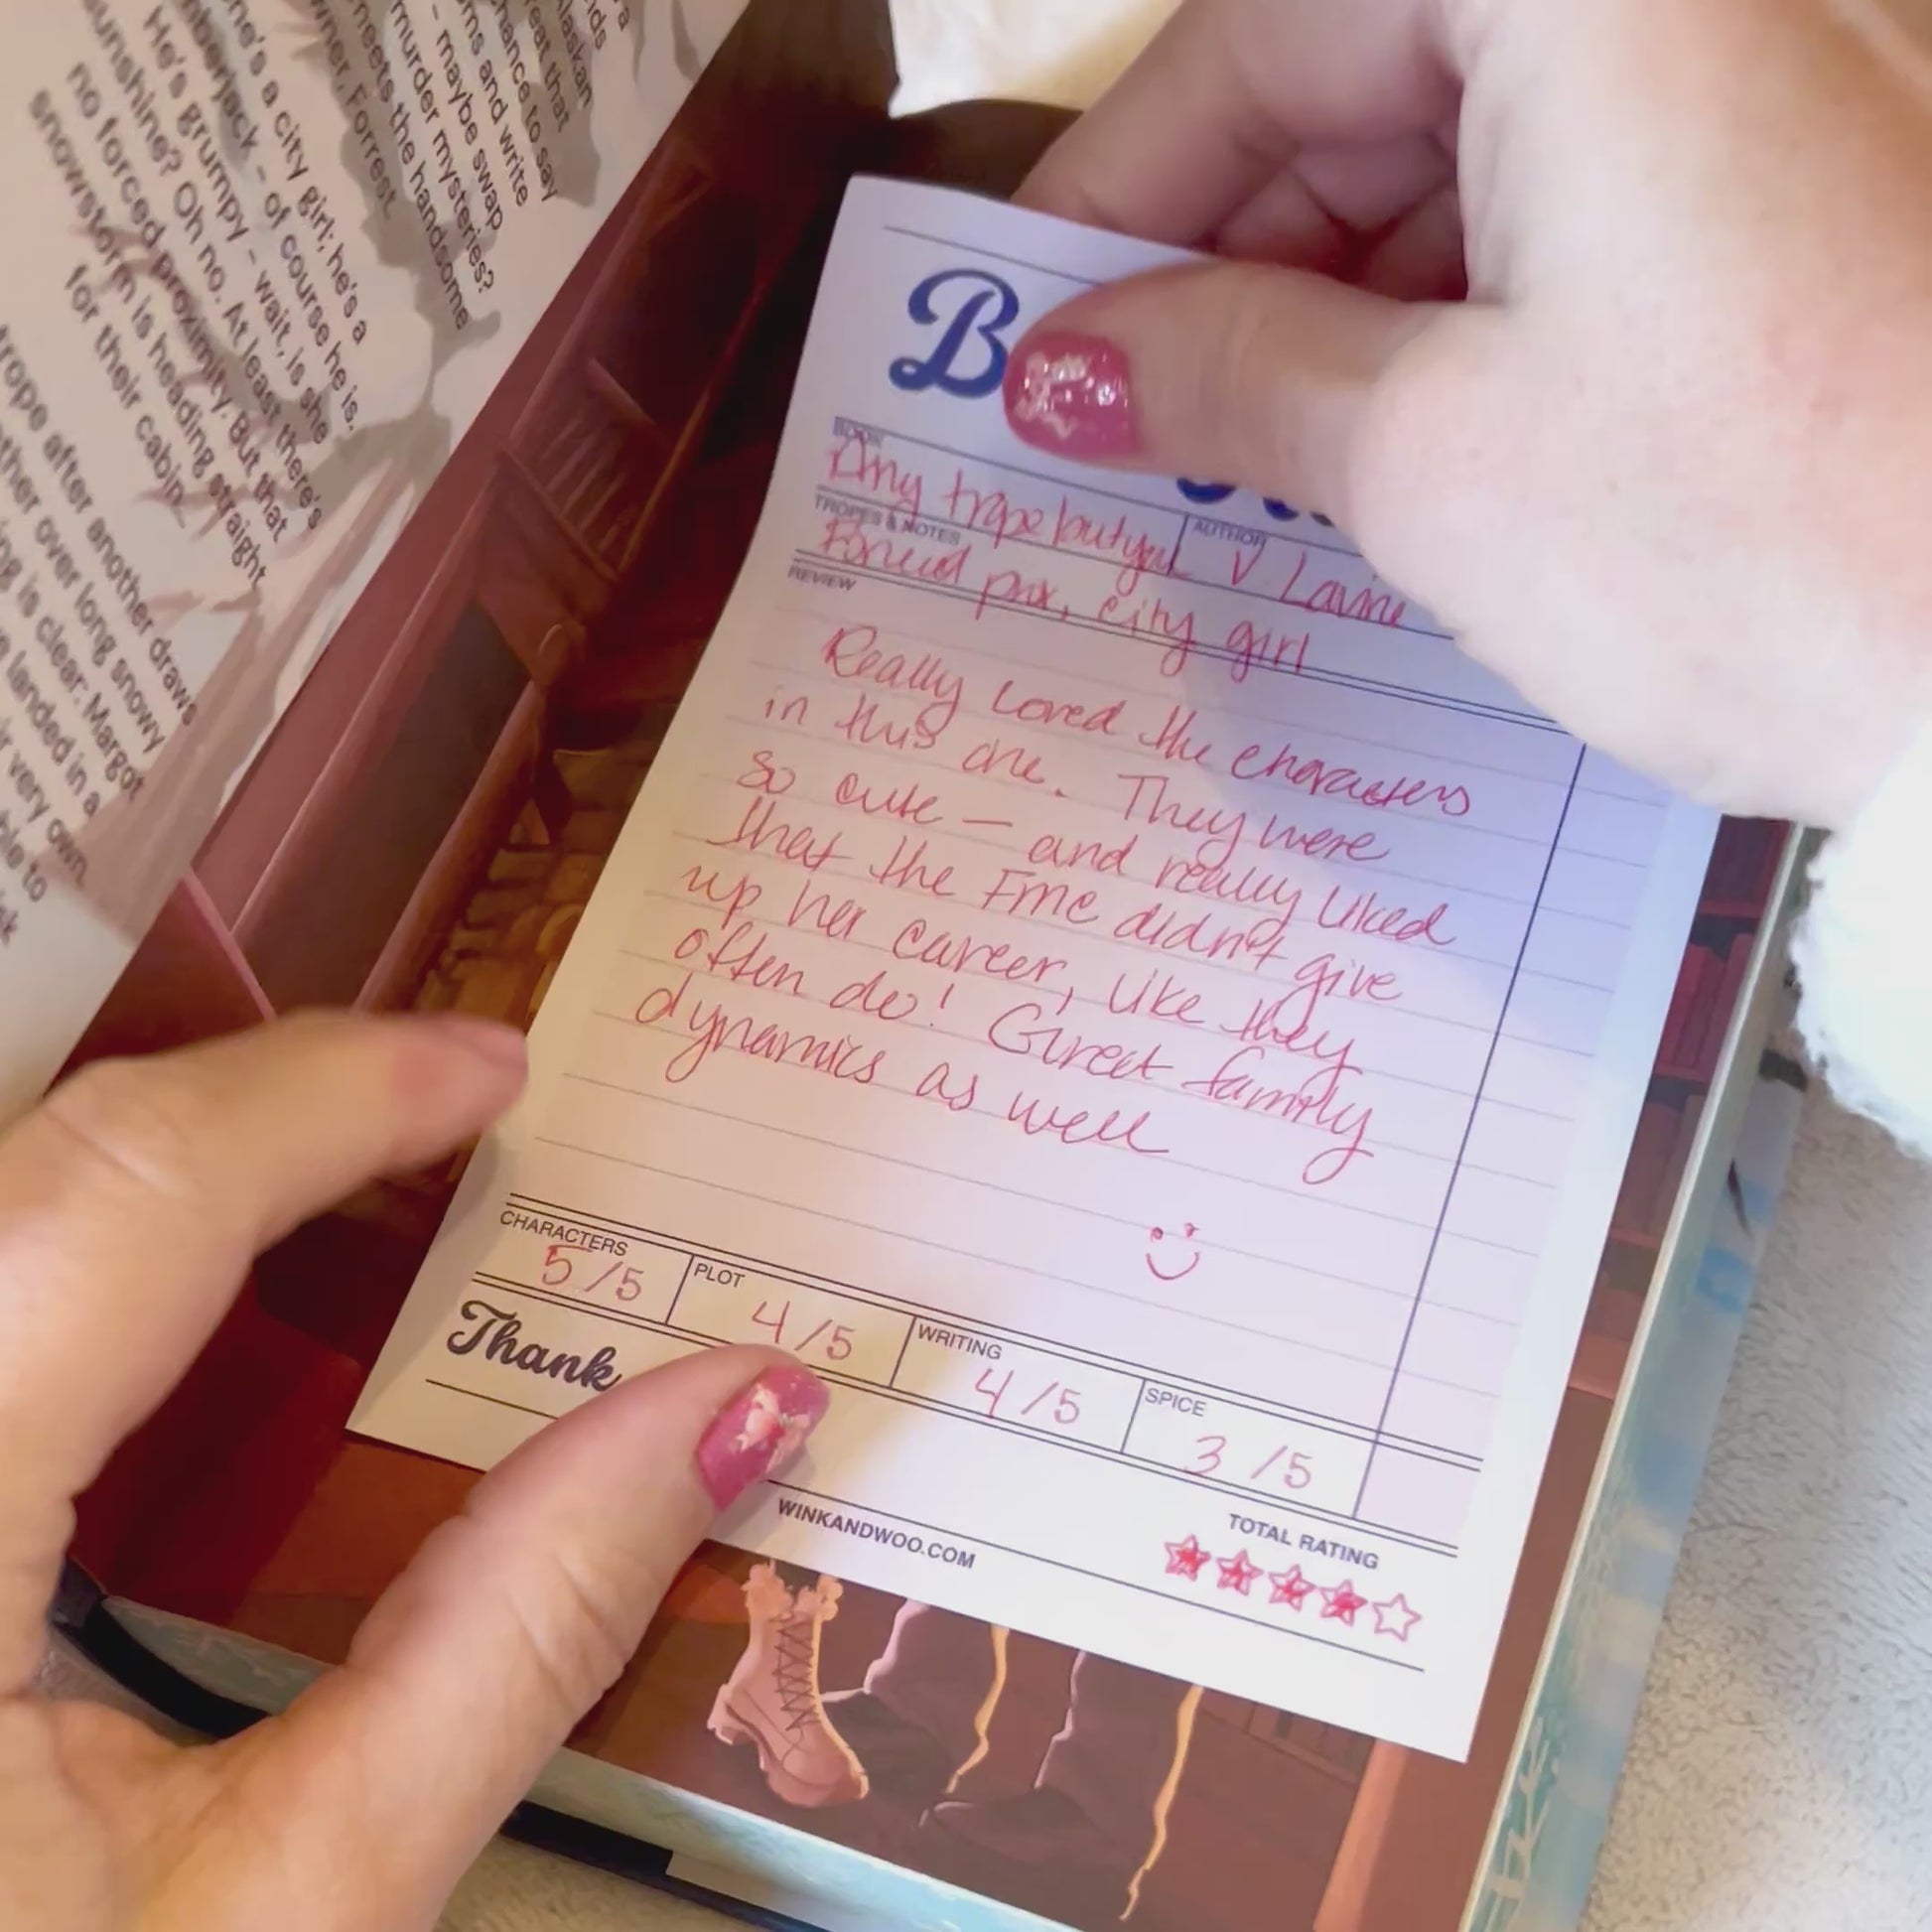 nds
laskan
reat that
hance to say
rms and write
– maybe swap
murder mysteries?
meets the handsome
wner, Forrest.
ne's a city girl; he's a
mberjack – of course he is.
He's grumpy – wait, is she
unshine? Oh no. At least there's
no forced proximity. But that
snowstorm is heading straight
for their cabin.
trope after another draws
ther over long snowy
ng is clear. Margot
e landed in a
r very own
ble to
isk
B
BOOK
Any trope but you
AUTHOR
V Lavine
TROPES & NOTES
Forced prox, city girl
REVIEW
Really loved the characters
in this one. They were
so cute – and really liked
that the FMC didn't give
up her career, like they
often do! Great family
dynamics as well
CHARACTERS
5/5
PLOT
4/5
WRITING
4/5
SPICE
3/5
Thank
WINKANDWOO.COM
TOTAL RATING